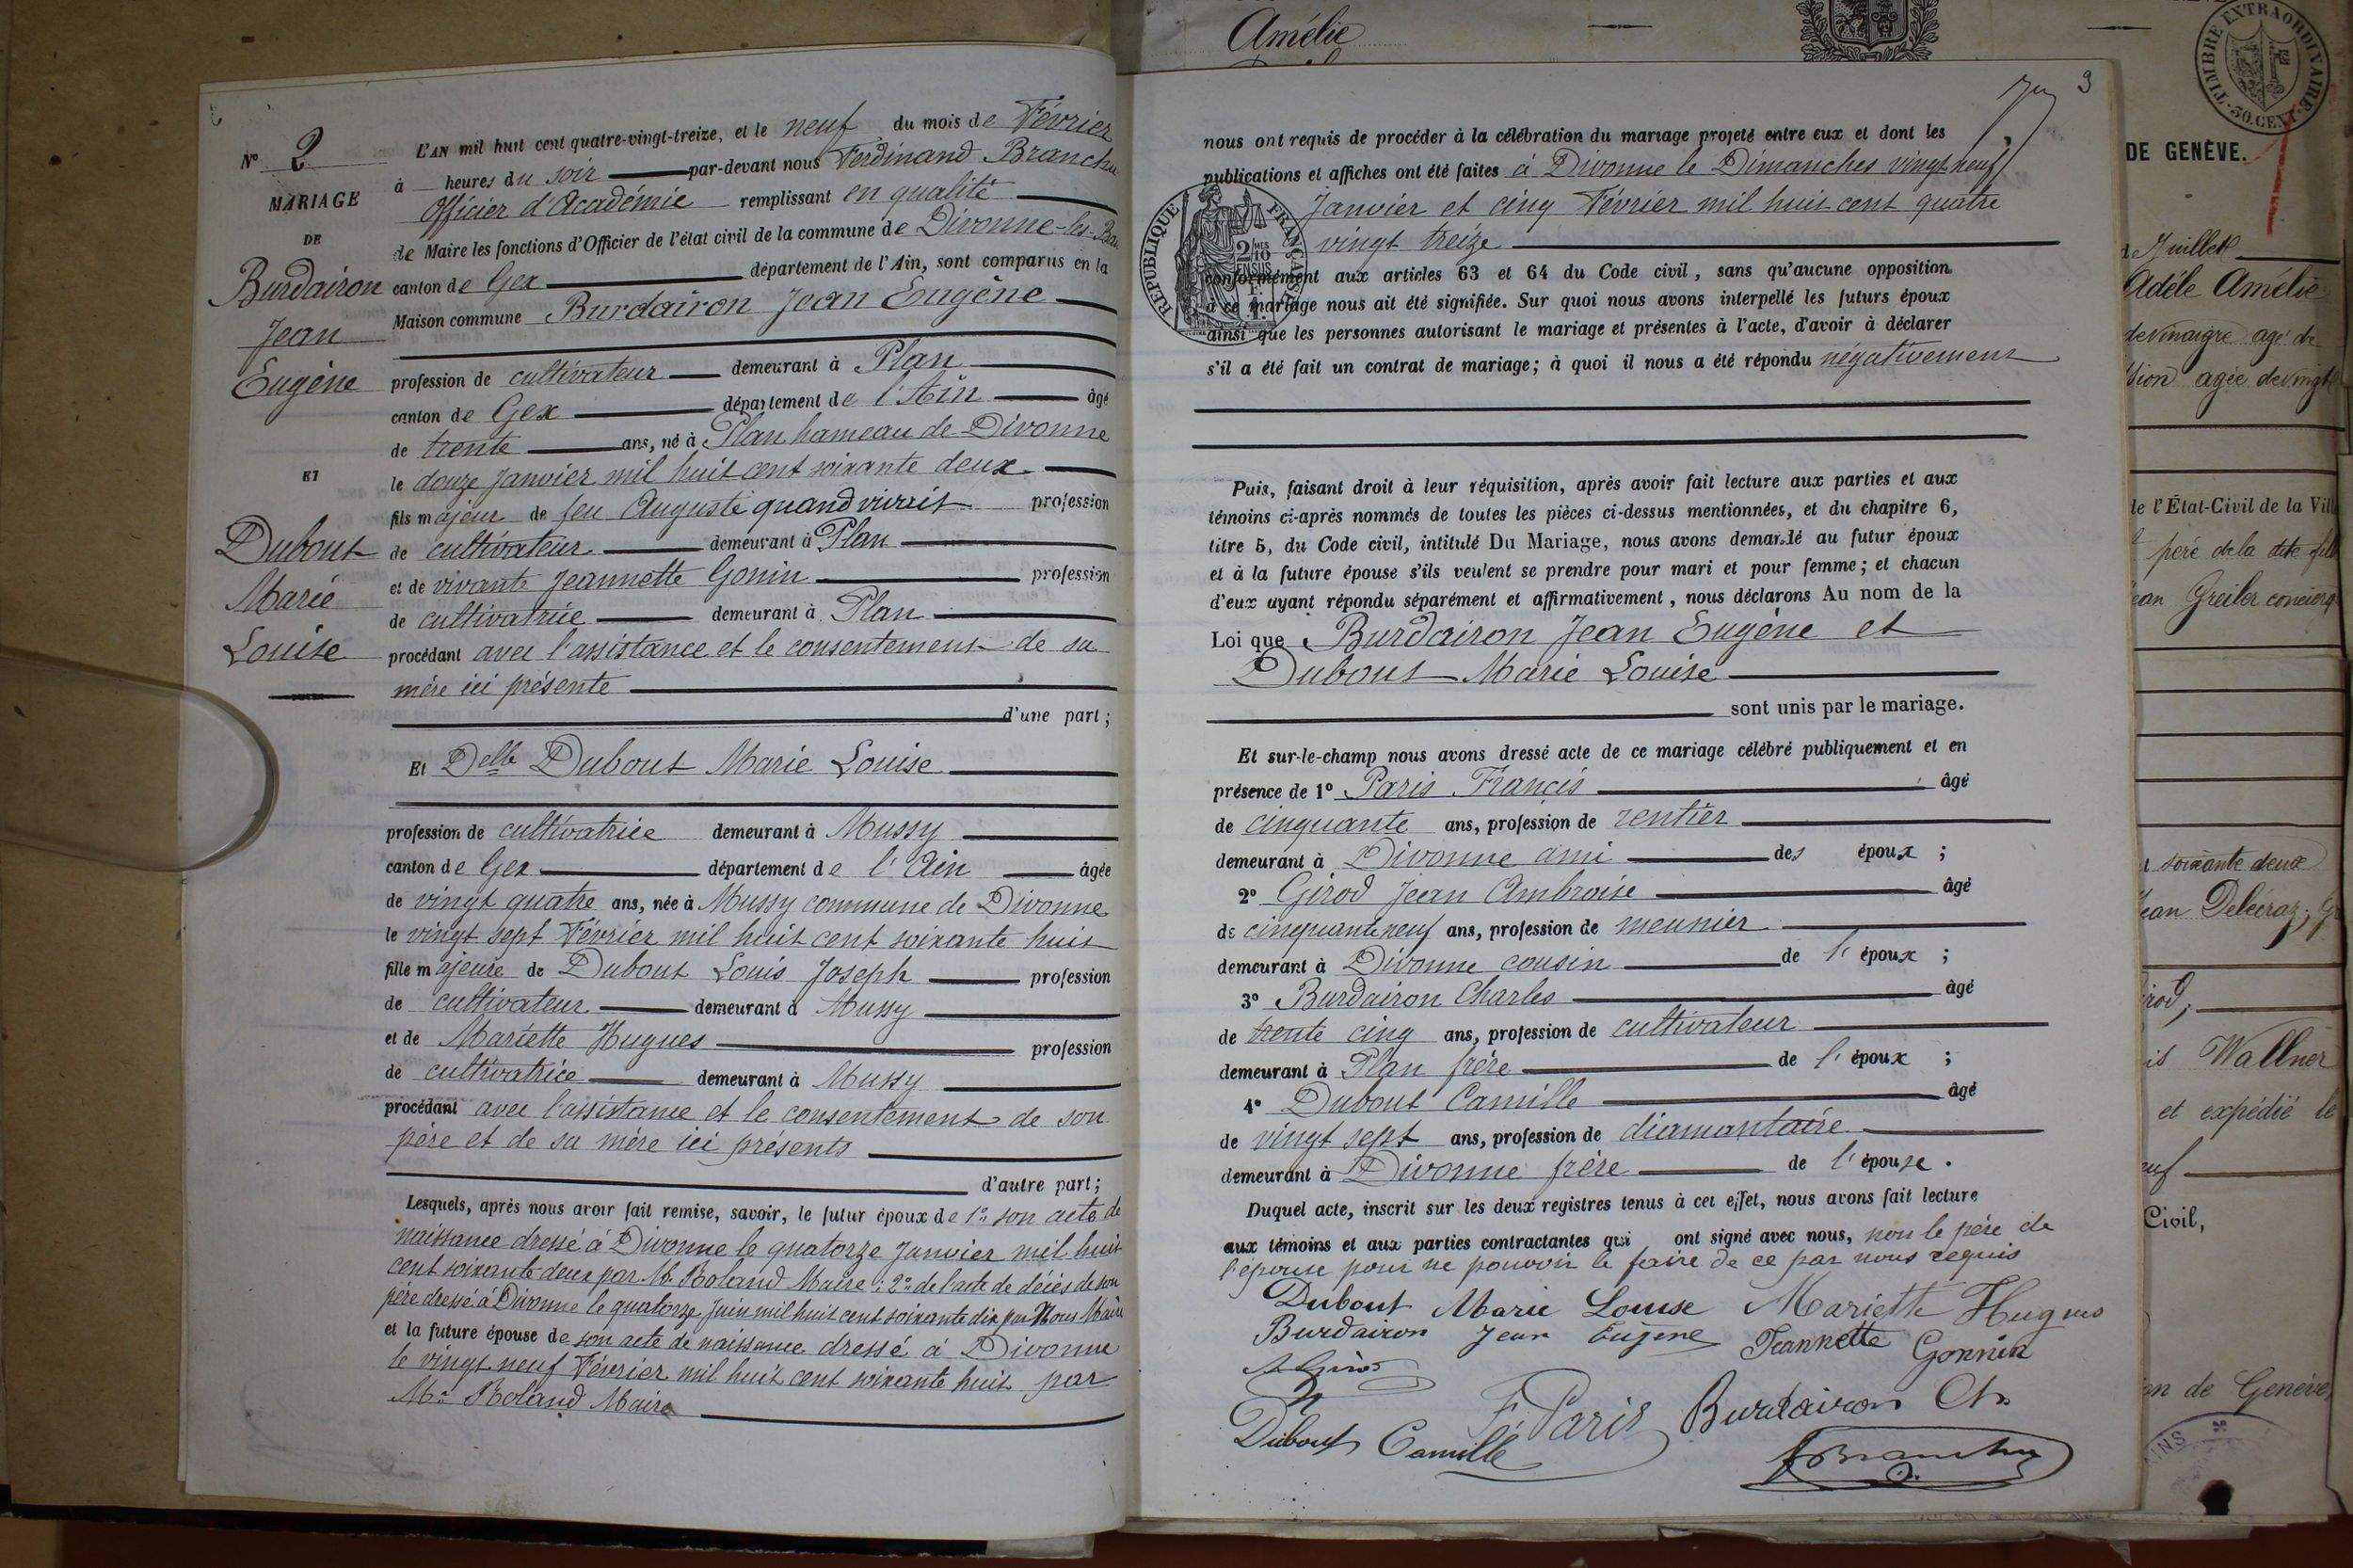 N° 2
MARIAGE
DE
Burdairon
Jean
Eugène
ET
Dubout
Marie
Louise
L'AN mil huit cent quatre-vingt-treize, et le neuf du mois de Février
à heures du soir par-devant nous Ferdinand Branchu
Officier d'Académie remplissant en qualité
de Maire les fonctions d'Officier de l'état civil de la commune de Divonne-les-Bai
canton de Gex département de l'Ain, sont comparus en la
Maison commune Burdairon Jean Eugène
profession de cultivateur demeurant à Plan
canton de Gex département de l'Ain âgé
de trente ans, né à Plan hameau de Divonne
le douze Janvier mil huit cent soixante deux
fils majeur de feu Auguste quand vivait profession
de cultivateur demeurant à Plan
et de vivante Jeannette Gonin profession
de cultivatrice demeurant à Plan
procédant avec l'assistance et le consentement de sa
mère ici présente
d'une part;
Et Delle Dubout Marie Louise
profession de cultivatrice demeurant à Mussy
canton de Gex département de l'Ain âgée
de vingt quatre ans, née à Mussy commune de Divonne
le vingt sept Février mil huit cent soixante huit
fille majeure de Dubout Louis Joseph profession
de cultivateur demeurant à Mussy
et de Mariette Hugues profession
de cultivatrice demeurant à Mussy
procédant avec l'assistance et le consentement de son
père et de sa mère ici présents
d'autre part;
Lesquels, après nous avoir fait remise, savoir, le futur époux de 1° son acte de
naissance dressé à Divonne le quatorze Janvier mil huit
cent soixante deux par Mr Roland Maire; 2° de l'acte de décès de son
père dressé à Divonne le quatorze Juin mil huit cent soixante dix par Nous Maire
et la future épouse de son acte de naissance dressé à Divonne
le vingt neuf Février mil huit cent soixante huit par
Mr Roland Maire
3
nous ont requis de procéder à la célébration du mariage projeté entre eux et dont les
publications et affiches ont été faites à Divonne le Dimanches vingt neuf
Janvier et cinq Février mil huit cent quatre
vingt treize
REPUBLIQUE FRANÇAISE
conformément aux articles 63 et 64 du Code civil, sans qu'aucune opposition
à ce mariage nous ait été signifiée. Sur quoi nous avons interpellé les futurs époux
ainsi que les personnes autorisant le mariage et présentes à l'acte, d'avoir à déclarer
s'il a été fait un contrat de mariage; à quoi il nous a été répondu négativement
Puis, faisant droit à leur réquisition, après avoir fait lecture aux parties et aux
témoins ci-après nommés de toutes les pièces ci-dessus mentionnées, et du chapitre 6,
titre 5, du Code civil, intitulé Du Mariage, nous avons demandé au futur époux
et à la future épouse s'ils veulent se prendre pour mari et pour femme; et chacun
d'eux ayant répondu séparément et affirmativement, nous déclarons Au nom de la
Loi que Burdairon Jean Eugène et
Dubout Marie Louise
sont unis par le mariage.
Et sur-le-champ nous avons dressé acte de ce mariage célébré publiquement et en
présence de 1° Paris Francis âgé
de cinquante ans, profession de rentier
demeurant à Divonne ami des époux;
2° Girod Jean Ambroise âgé
de cinquante neuf ans, profession de meunier
demeurant à Divonne cousin de l'époux;
3° Burdairon Charles âgé
de trente cinq ans, profession de cultivateur
demeurant à Plan frère de l'époux;
4° Dubout Camille âgé
de vingt sept ans, profession de diamantaire
demeurant à Divonne frère de l'épouse.
Duquel acte, inscrit sur les deux registres tenus à cet effet, nous avons fait lecture
aux témoins et aux parties contractantes qui ont signé avec nous, non le père de
l'épouse pour ne pouvoir le faire de ce par nous requis
Dubout Marie Louise Mariette Hugues
Burdairon Jean Eugène Jeannette Gonnin
A Girod
F Paris Burdairon Ch
Dubout Camille
F Branchu
Amélie
TIMBRE EXTRAORDINAIRE
30.CENT.
DE GENÈVE.
de Juillet
Adéle Amélie
de vinaigre agé de
sion agée de vingt
de l'État-Civil de la Vill
père de la dite fill
ean Greiler concierg
soixante deux
ean Delécraz, G
irod,
is Wallner
et expédié le
euf
Civil,
on de Genève,